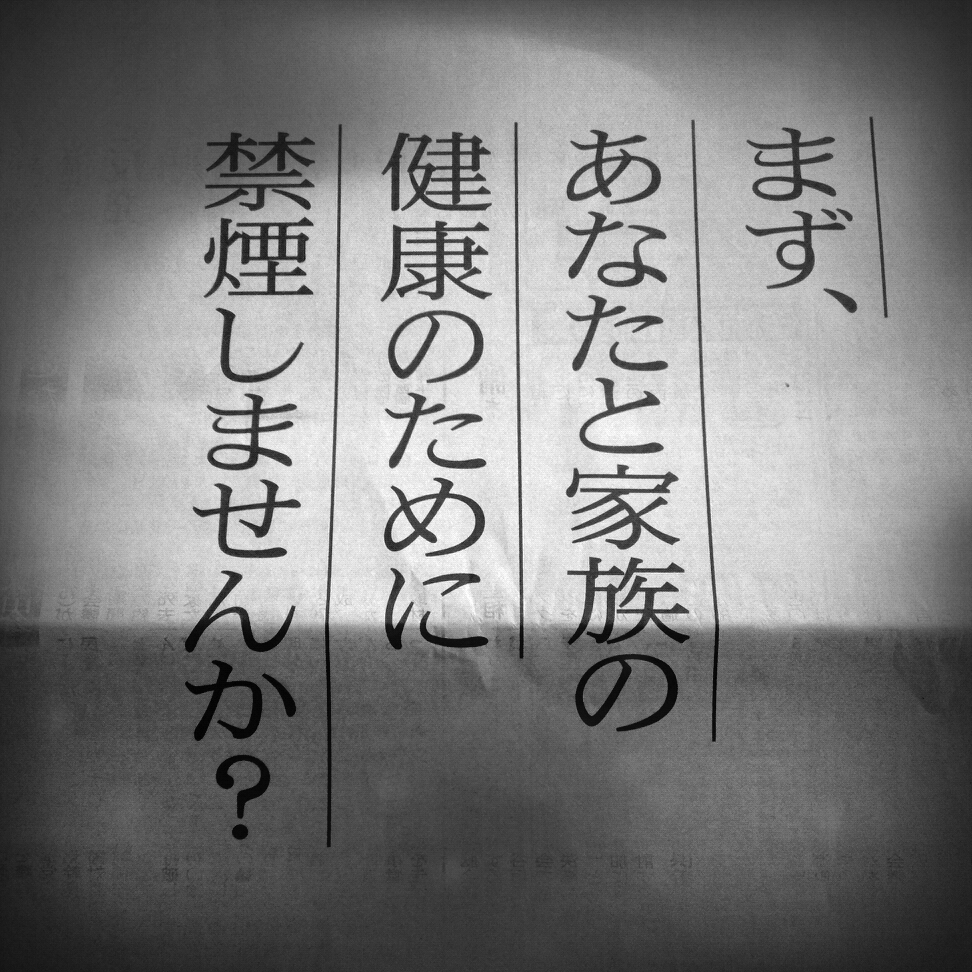 まず、
あなたと家族の
健康のために
禁煙しませんか?